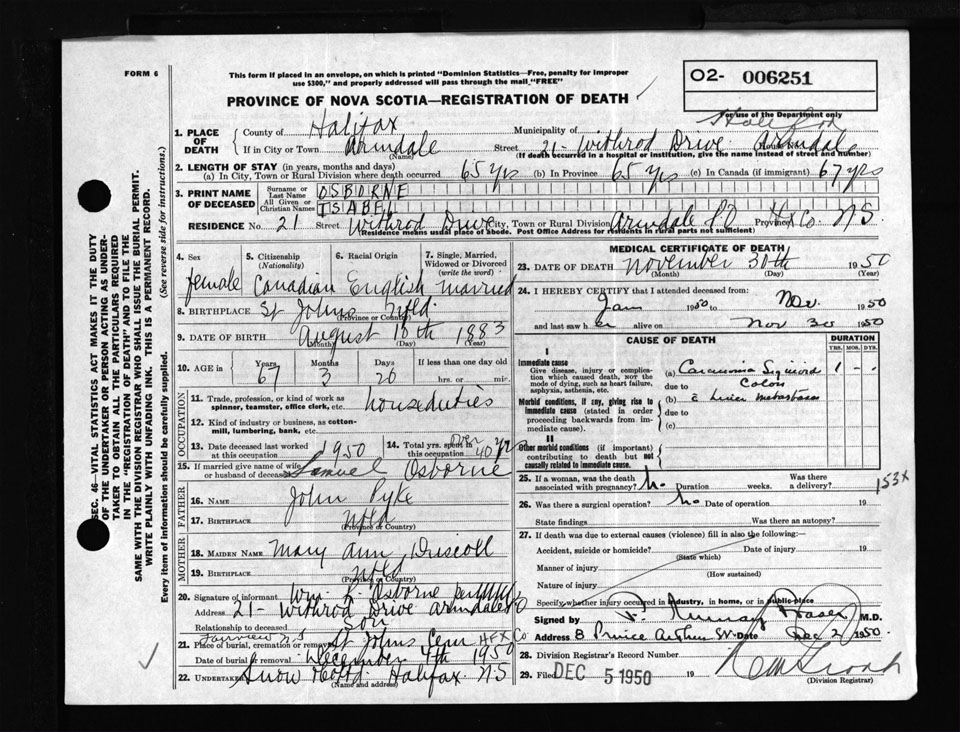 FORM 6
This form if placed in an envelope, on which is printed "Dominion Statistics—Free, penalty for improper
use $300," and properly addressed will pass through the mail "FREE"
O2- 006251
For use of the Department only
PROVINCE OF NOVA SCOTIA—REGISTRATION OF DEATH
1. PLACE OF DEATH
County of Halifax Municipality of Halifax
If in City or Town Armdale (Name) Street 21- Withrod Drive House No. Armdale
(If death occurred in a hospital or institution, give the name instead of street and number)
2. LENGTH OF STAY (in years, months and days)
(a) In City, Town or Rural Division where death occurred 65 yrs (b) In Province 65 yrs (c) In Canada (if immigrant) 67 yrs
3. PRINT NAME OF DECEASED
Surname or Last Name OSBORNE
All Given or Christian Names ISABEL
RESIDENCE No. 21 Street Withrod Drive City, Town or Rural Division Armdale P.O Province Hx Co. N.S.
(Residence means usual place of abode. Post Office Address for residents in rural parts not sufficient)
4. Sex female
5. Citizenship (Nationality) Canadian
6. Racial Origin English
7. Single, Married, Widowed or Divorced (write the word) married
8. BIRTHPLACE St Johns Nfld (Province or Country)
9. DATE OF BIRTH August 10th 1883
(Month) (Day) (Year)
10. AGE Years 67 Months 3 Days 20 If less than one day old
hrs. or min.
OCCUPATION
11. Trade, profession, or kind of work as spinner, teamster, office clerk, etc. houseduties
12. Kind of industry or business, as cotton-mill, lumbering, bank, etc.
13. Date deceased last worked at this occupation 1950
14. Total yrs. spent in this occupation over 40 yrs
15. If married give name of wife or husband of deceased Samuel Osborne
FATHER
16. NAME John Pyke
17. BIRTHPLACE Nfld (Province or Country)
MOTHER
18. MAIDEN NAME Mary Ann Driscoll
19. BIRTHPLACE Nfld (Province or Country)
20. Signature of informant Wm. R. Osborne per
Address 21- Withrod Drive Armdale P O
Relationship to deceased Son
21. Place of burial, cremation or removal Fairview N.S St Johns Cem HFX Co
Date of burial or removal December 4th 1950
22. UNDERTAKER Snow Co Ltd. Halifax N.S
(Name and address)
MEDICAL CERTIFICATE OF DEATH
23. DATE OF DEATH November 30th 1950
(Month) (Day) (Year)
24. I HEREBY CERTIFY that I attended deceased from:
Jan 1950 to Nov. 1950
and last saw her alive on Nov 30 1950
CAUSE OF DEATH
DURATION
YRS. MOS. DYS.
I
Immediate cause
Give disease, injury or complication which caused death, NOT the mode of dying, such as heart failure, asphyxia, asthenia, etc.
(a) Carcinoma Sigmoid 1 - -
due to Colon
Morbid conditions, if any, giving rise to immediate cause (stated in order proceeding backwards from immediate cause).
(b) c̄ liver metastases
due to
(c)
II
Other morbid conditions (if important) contributing to death but not causally related to immediate cause.
25. If a woman, was the death associated with pregnancy? No. Duration weeks. Was there a delivery?
153X
26. Was there a surgical operation? No Date of operation 19
State findings Was there an autopsy?
27. If death was due to external causes (violence) fill in also the following:
Accident, suicide or homicide? (State which) Date of injury 19
Manner of injury (How sustained)
Nature of injury
Specify whether injury occurred in industry, in home, or in public place
Signed by F. Murray Fraser M.D.
Address 8 Prince Arthur St Date Dec 2 1950.
28. Division Registrar's Record Number
29. Filed DEC 5 1950 19
(Division Registrar)
SEC. 46—VITAL STATISTICS ACT MAKES IT THE DUTY
OF THE UNDERTAKER OR PERSON ACTING AS UNDER-
TAKER TO OBTAIN ALL THE PARTICULARS REQUIRED
IN THE "REGISTRATION OF DEATH" AND TO FILE THE
SAME WITH THE DIVISION REGISTRAR WHO SHALL ISSUE THE BURIAL PERMIT.
WRITE PLAINLY WITH UNFADING INK. THIS IS A PERMANENT RECORD.
Every item of information should be carefully supplied. (See reverse side for instructions.)